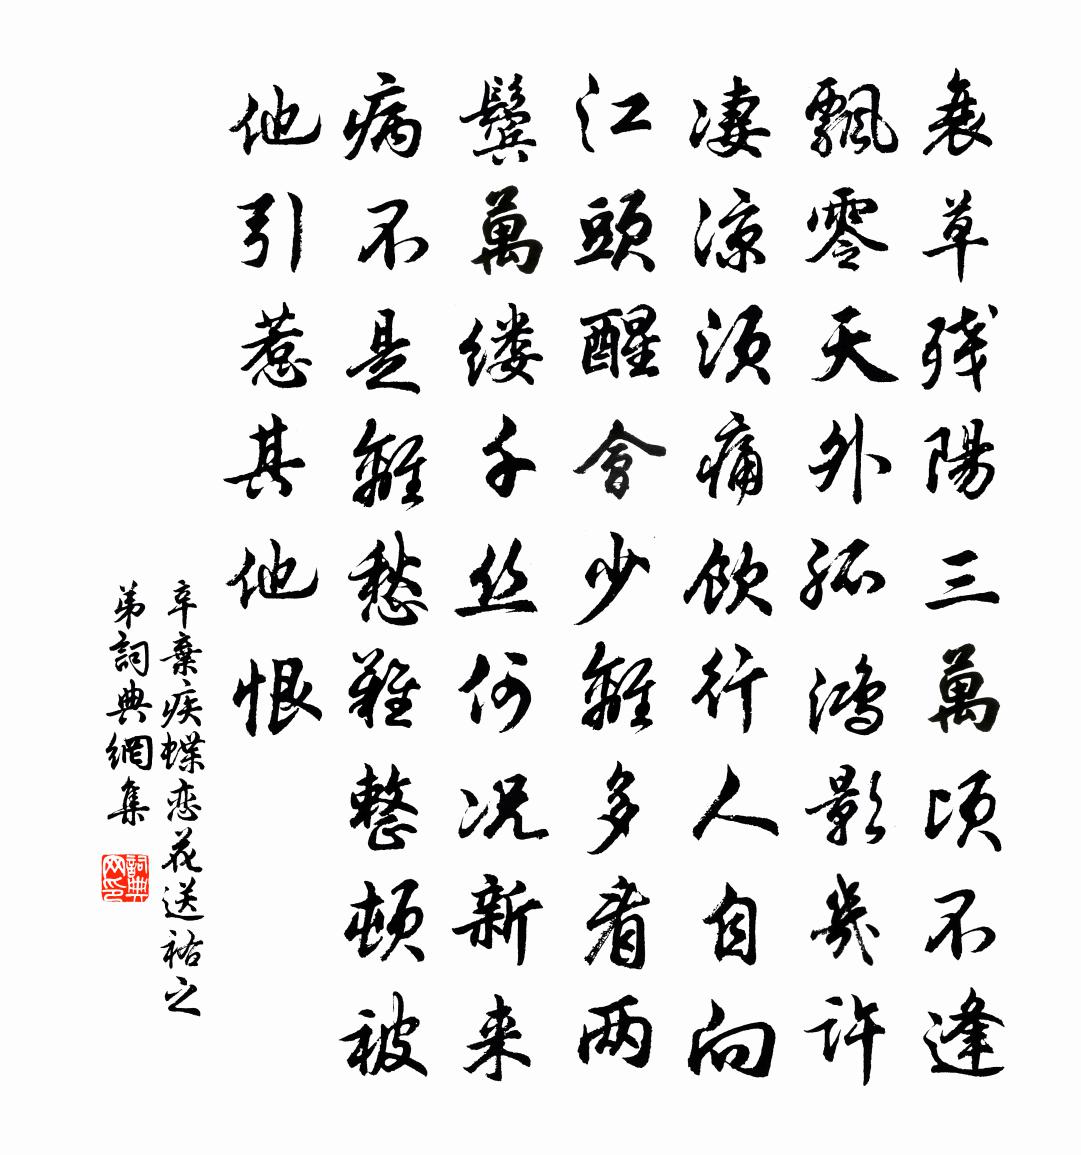 衰草残陽三萬頃不逢
飄零天外孤鴻影幾許
凄涼須痛飲行人自向
江頭醒會少離多看两
鬓萬缕千丝何况新来
病不是離愁難整頓被
他引惹其他恨
辛棄疾蝶恋花送祐之
弟詞典網集
詞典网印